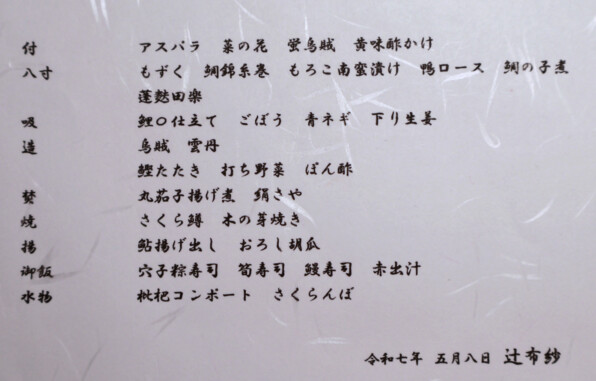 付 アスパラ 菜の花 蛍烏賊 黄味酢かけ
八寸 もずく 鯛錦糸巻 もろこ南蛮漬け 鴨ロース 鯛の子煮
蓬麩田楽
吸 鯉〇仕立て ごぼう 青ネギ 下り生姜
造 烏賊 雲丹
鰹たたき 打ち野菜 ぽん酢
焚 丸茄子揚げ煮 絹さや
焼 さくら鱒 木の芽焼き
揚 鮎揚げ出し おろし胡瓜
御飯 穴子粽寿司 筍寿司 鰻寿司 赤出汁
水物 枇杷コンポート さくらんぼ
令和七年 五月八日 辻布紗